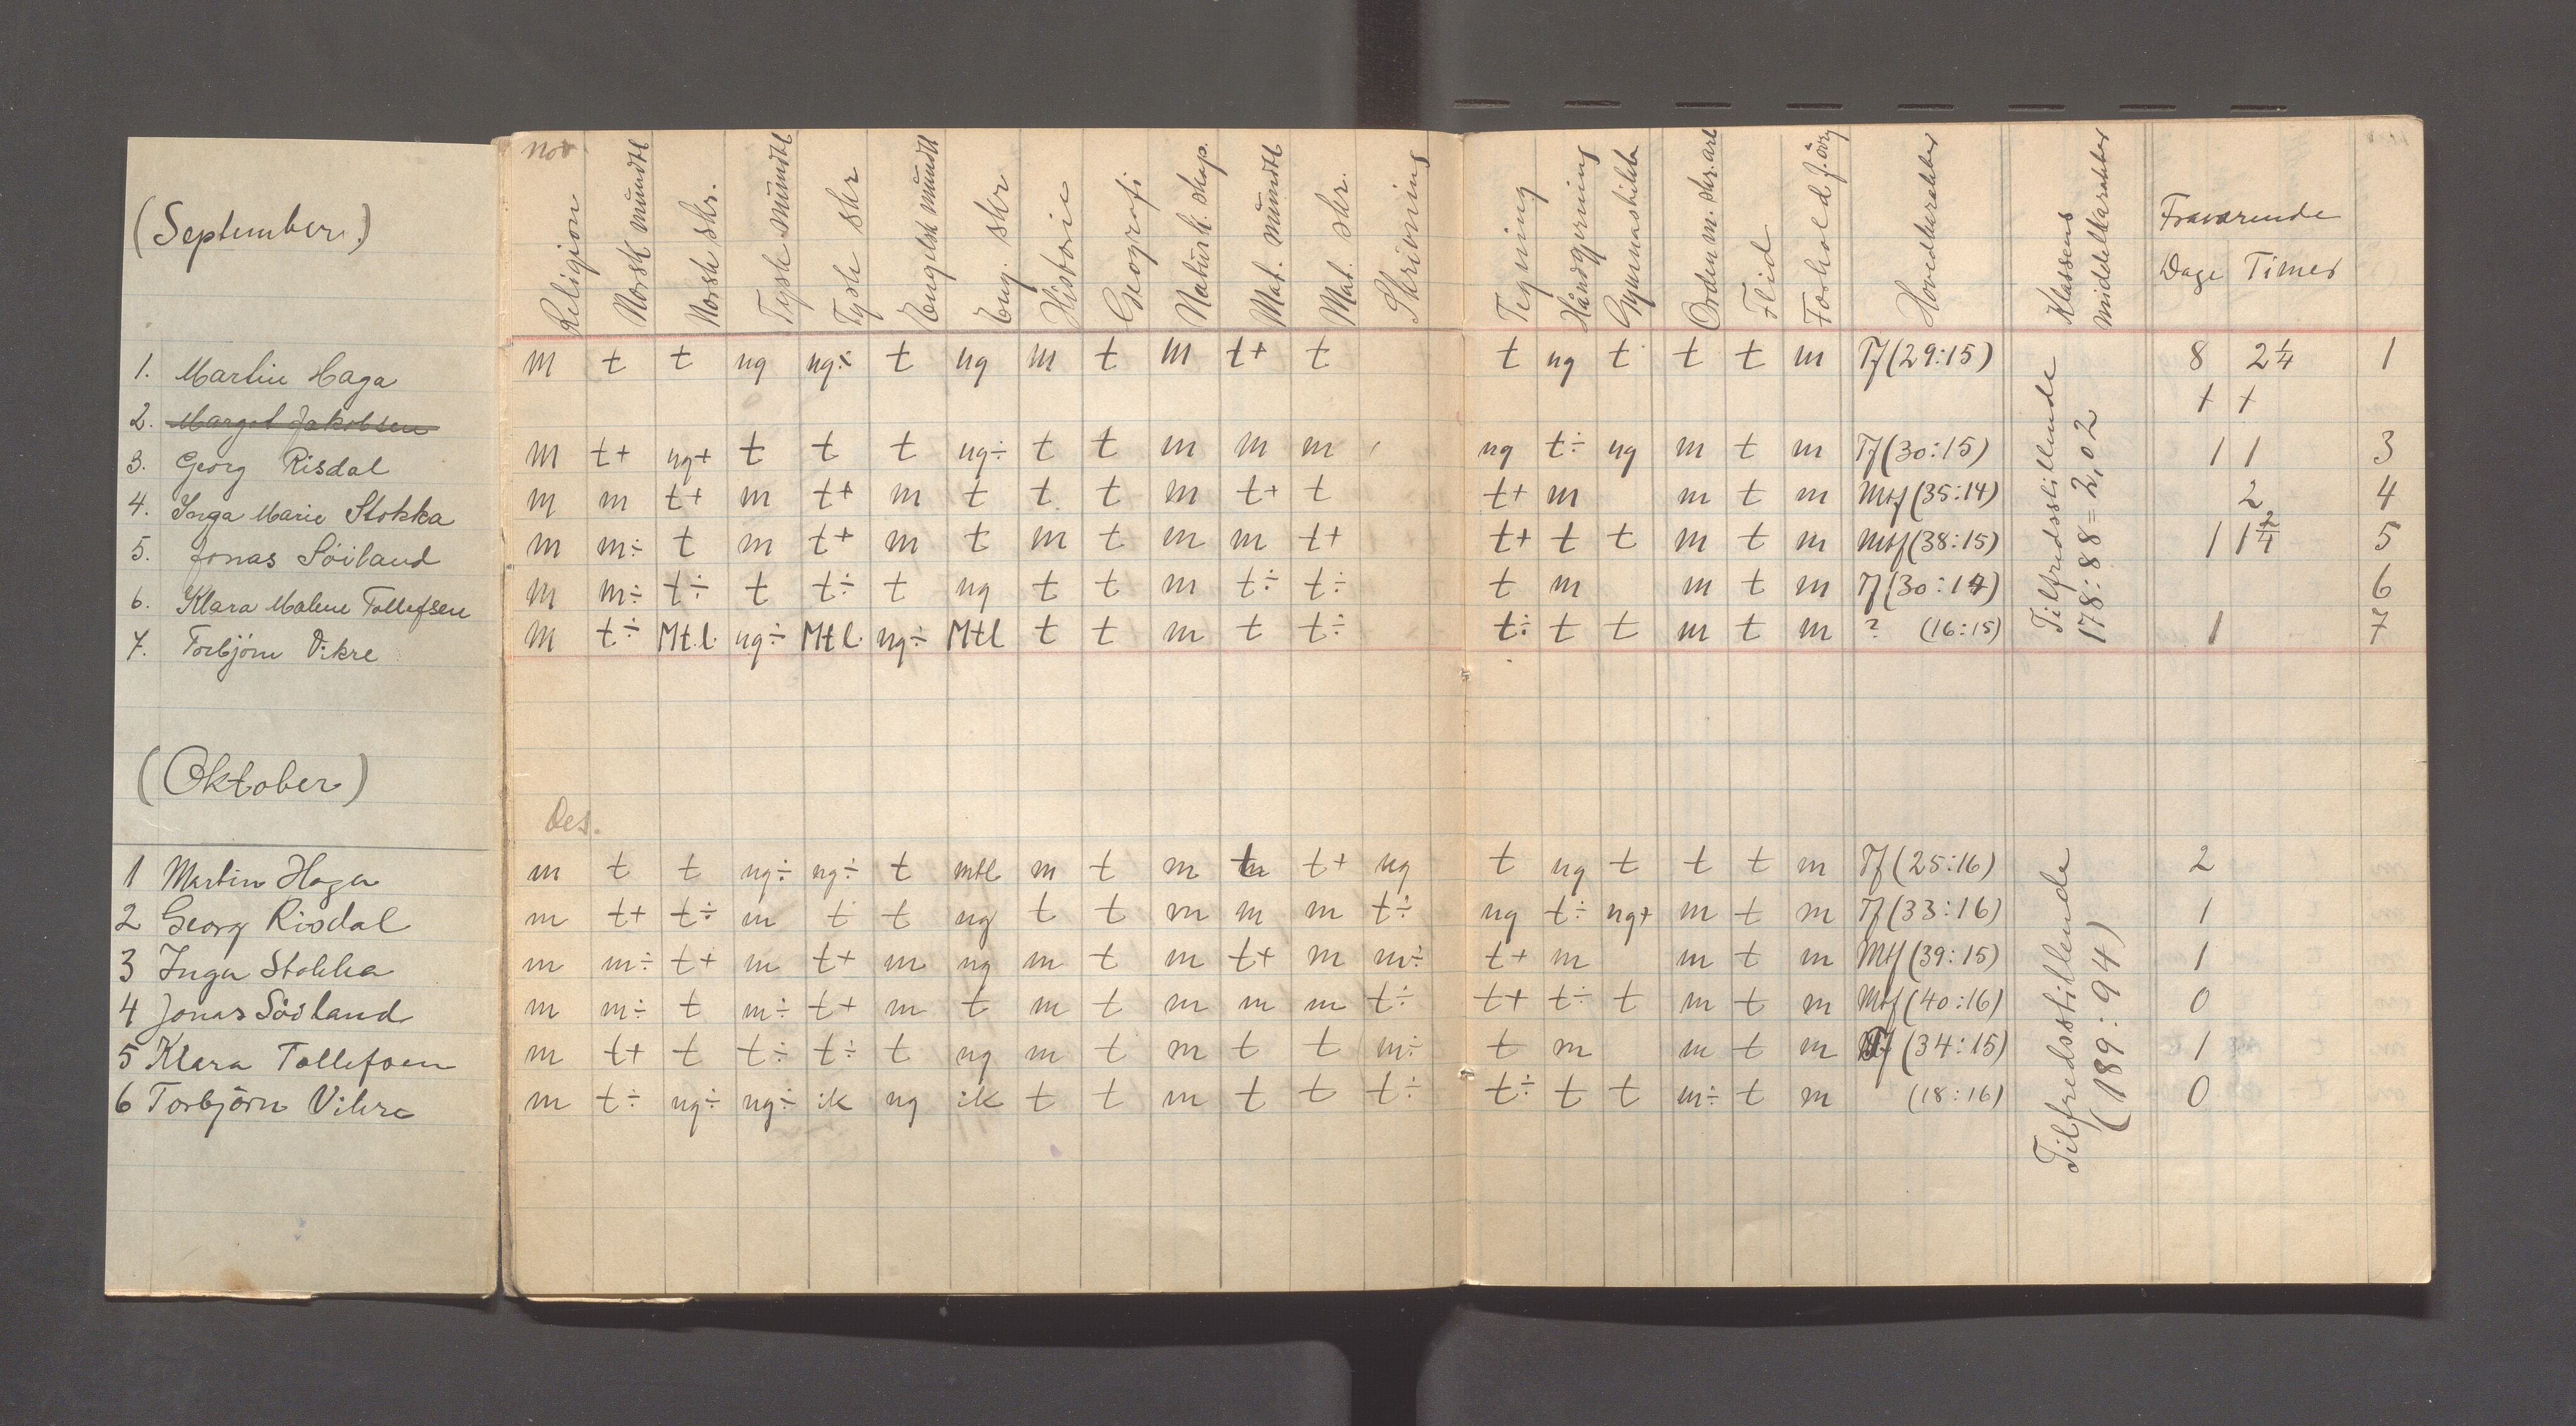 (September.)
1. Martin Haga
2. Margot Jakobsen
3. Georg Risdal
4. Inga Marie Stokka
5. Jonas Söiland
6. Klara Malene Tollefsen
7. Torbjörn Vikre
(Oktober)
1 Martin Haga
2 Georg Risdal
3 Inga Stokka
4 Jonas Söiland
5 Klara Tollefsen
6 Torbjörn Vikre
nov
Religion Norsk mundtl Norsk skr. Tysk mundtl Tysk skr Engelsk mundtl Eng. skr Historie Geografi Naturk.skap. Mat. mundtl Mat. skr. Skrivning Tegning Håndgjerning Gymnastikk Orden m. skr. arb Flid Forhold f. övr Hovedkarakter Klassens middelkarakter Fraværende Dage Timer
M t t ng ng÷ t ng m t M t+ t t ng t t t m Tf (29:15) 8 2 1/4 1
+ +
M t+ ng+ t t t ng÷ t t m m m ng t÷ ng m t m Tf (30:15) 1 1 3
M m t+ m t+ m t t t m t+ t t+ m m t m Mtf (35:14) 2 4
M m÷ t m t+ m t m t m m t+ t+ t t m t m Mtf (38:15) 1 1 2/4 5
M m÷ t÷ t t÷ t ng t t m t÷ t÷ t m m t m Tf (30:14) 6
M t÷ Mt.l. ng÷ Mt l. ng÷ Mtl t t m t t÷ t÷ t t m t m ? (16:15) 1 7
Tilfredsstillende
178:88=2,02
Des.
m t t ng÷ ng÷ t mtl m t m t+ ng t ng t t t m Tf (25:16) 2
m t+ t÷ m t t ng t t m m m t÷ ng t÷ ng+ m t m Tf (33:16) 1
m m÷ t+ m t+ m ng m t m t+ m m÷ t+ m m t m Mtf (39:15) 1
m m÷ t m÷ t+ m t m t m m m t÷ t+ t÷ t m t m Mtf (40:16) 0
m t+ t t÷ t÷ t ng m t m t t m÷ t m m t m Tf (34:15) 1
m t÷ ng÷ ng÷ ik ng ik t t m t t t÷ t÷ t t m÷ t m (18:16) 0
Tilfredsstillende
(189:94)